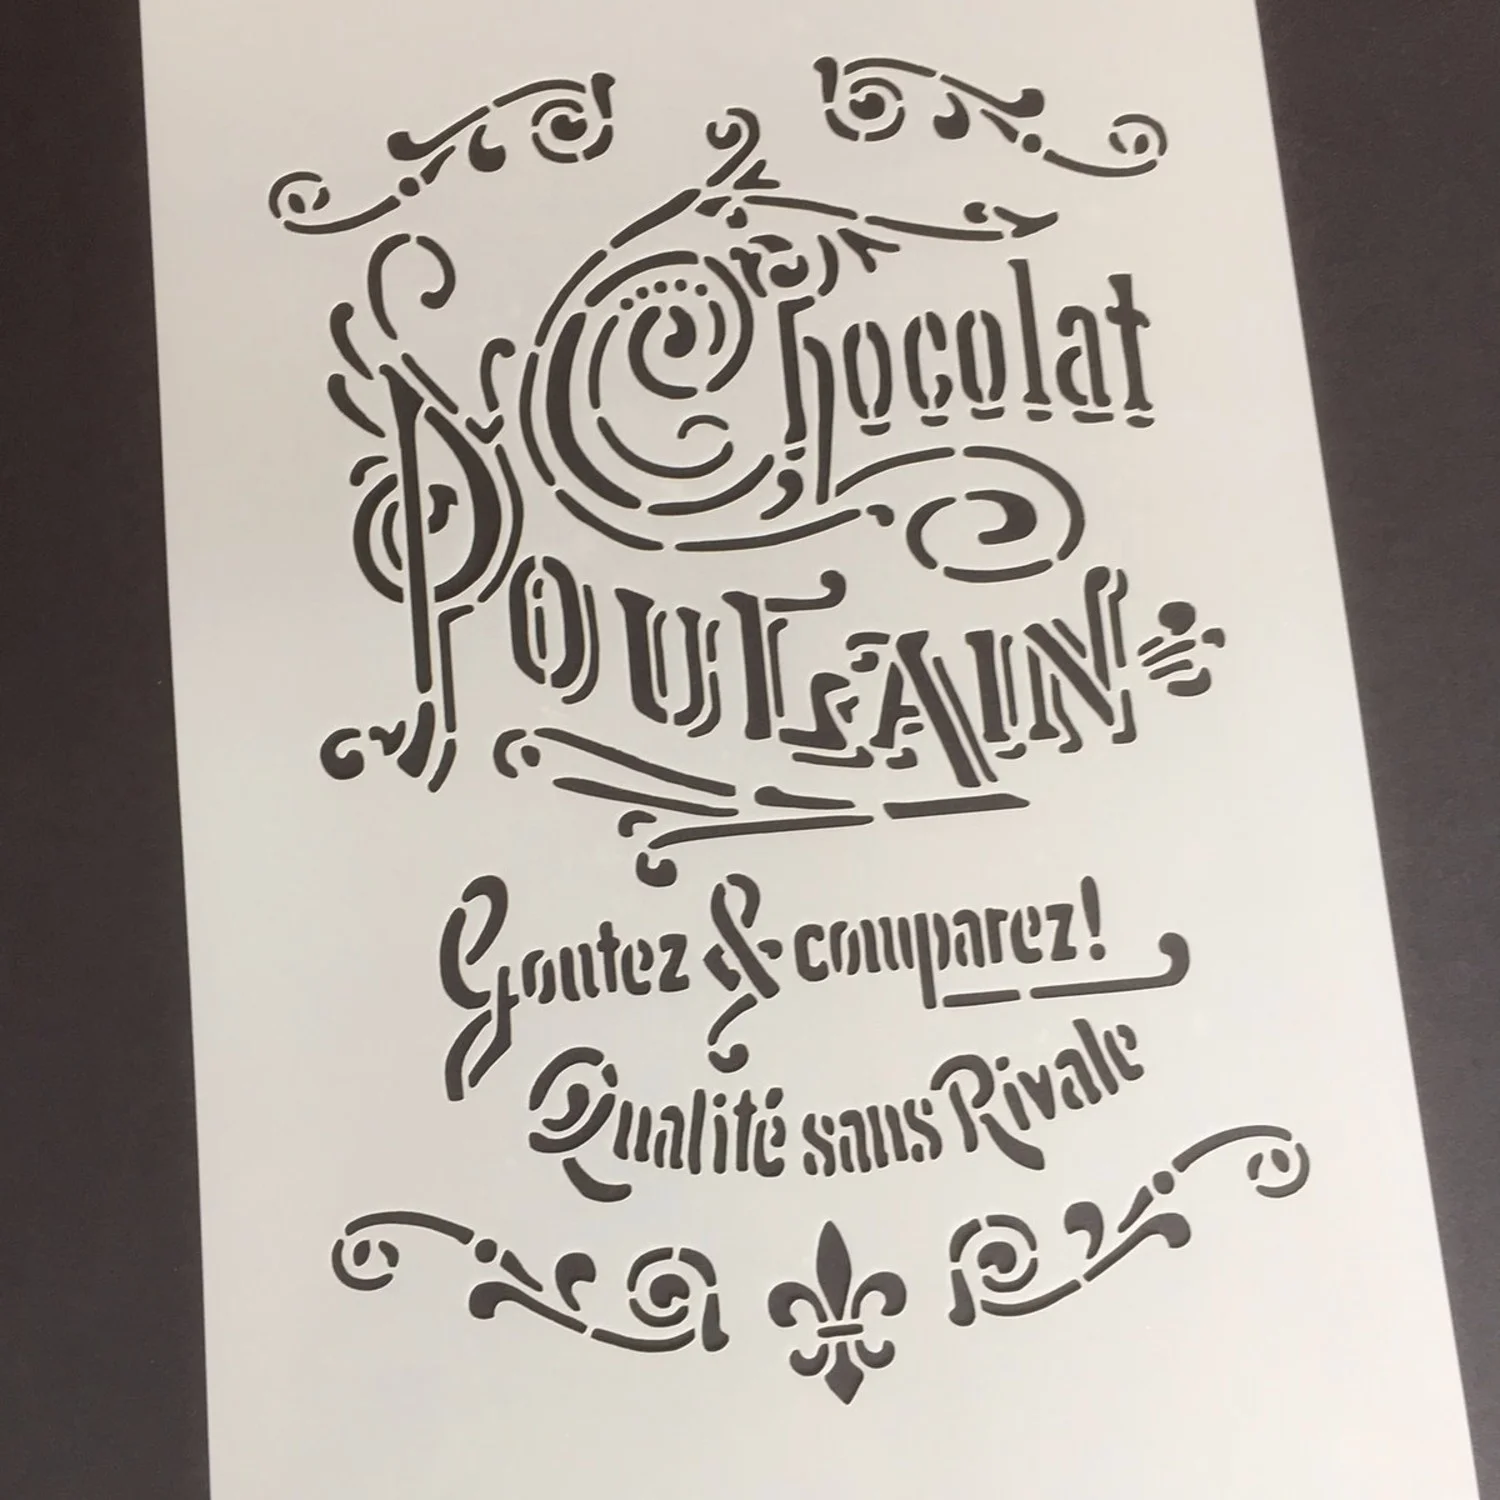 Chocolat
POULAIN
Goutez & comparez!
Qualité sans Rivale